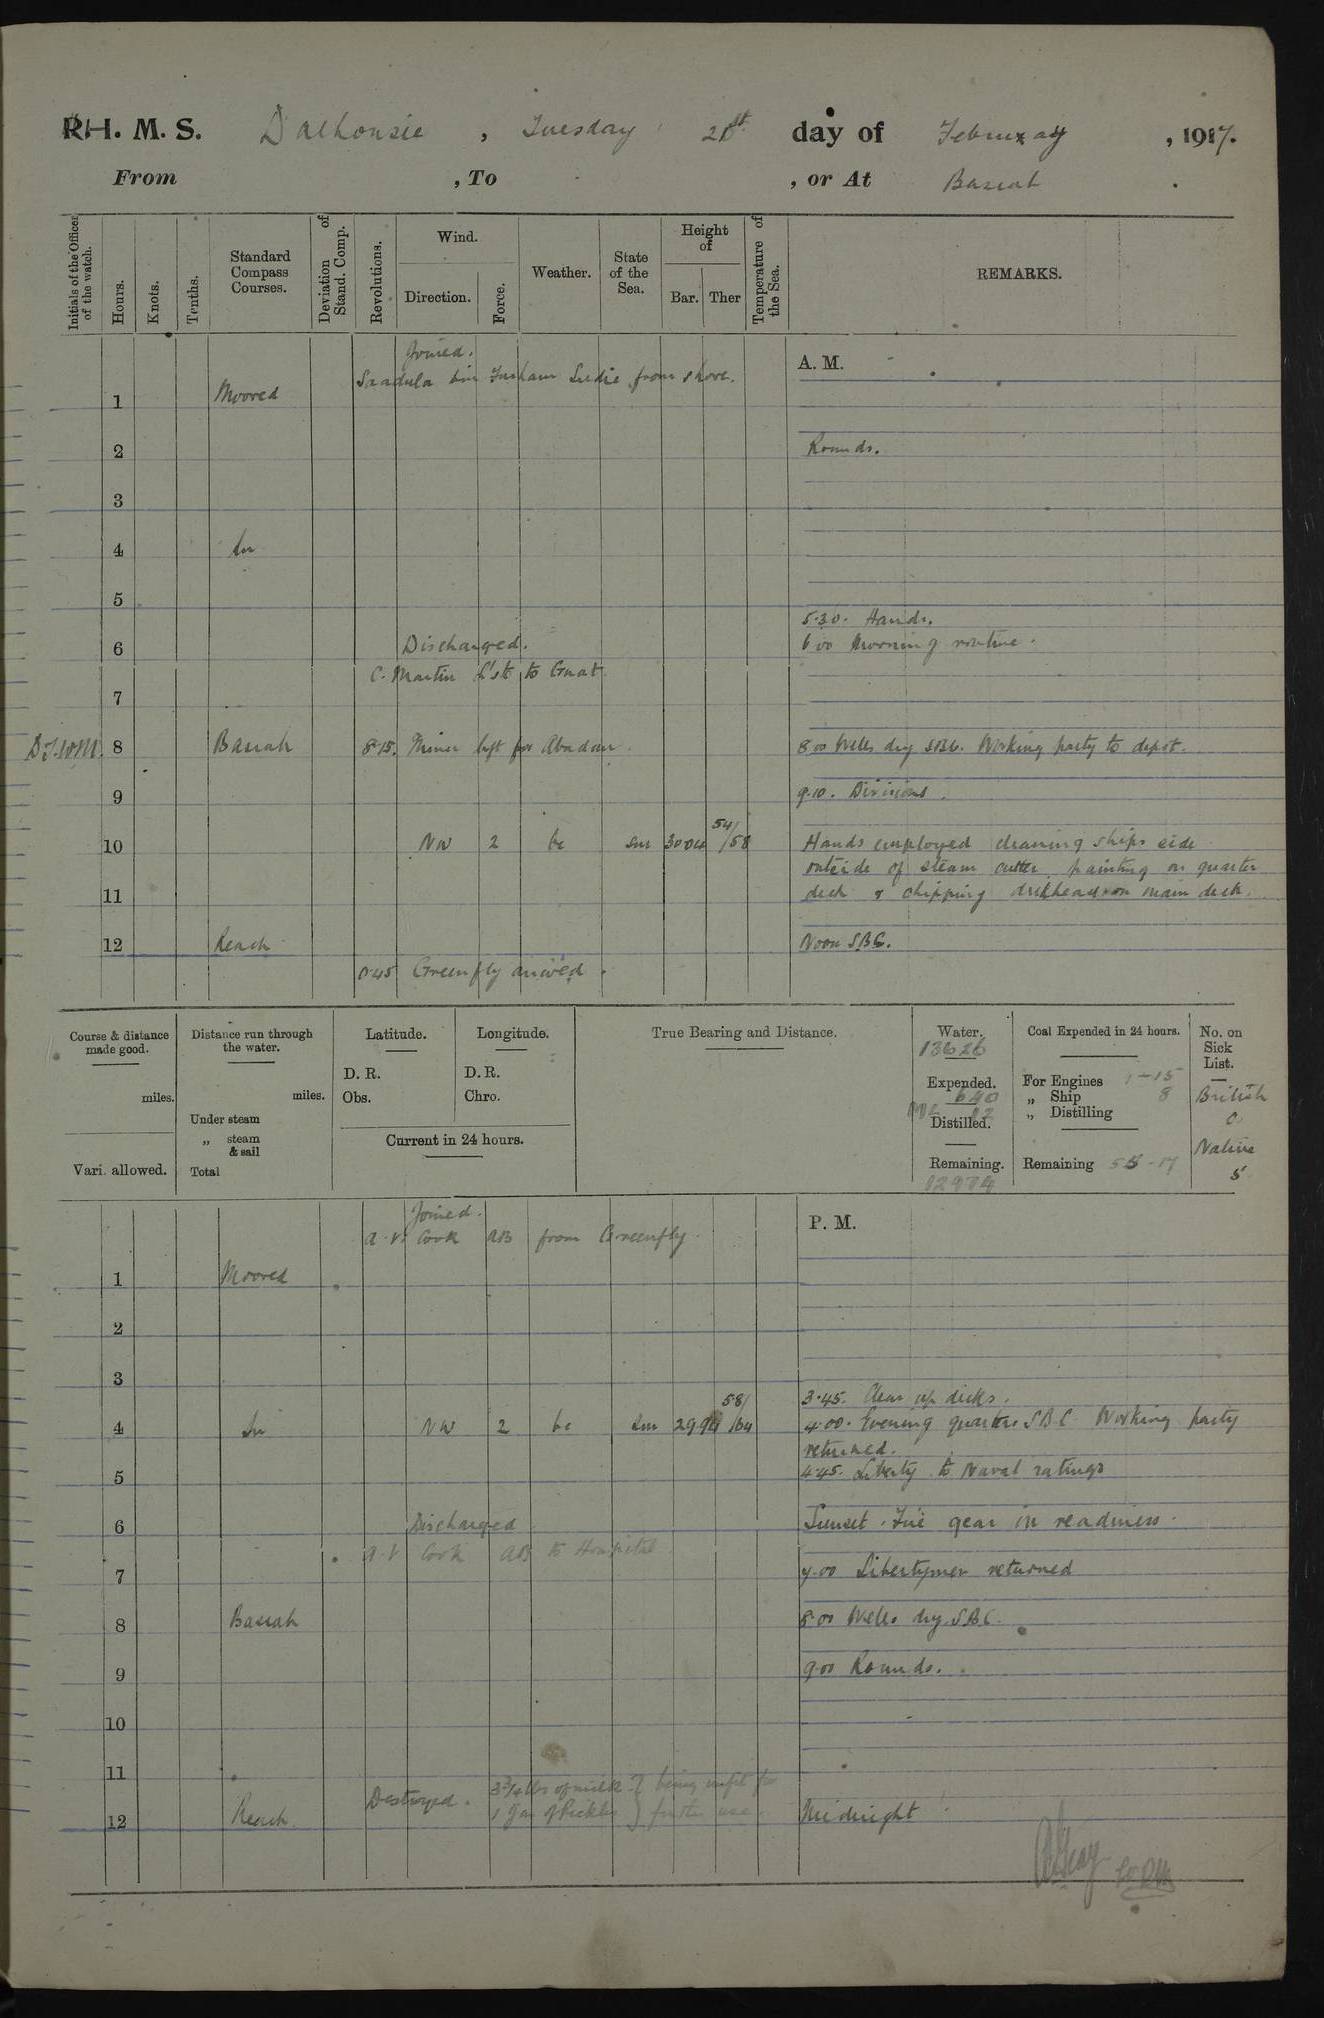 R.H. M. S. Dalhousie, Tuesday 20st day of February, 1917.
From , To , or At Basrah.
Initials of the Officer of the watch.
Hours.
Knots.
Tenths.
Standard Compass Courses.
Deviation of Stand. Comp.
Revolutions.
Wind.
Direction.
Force.
Weather.
State of the Sea.
Height of
Bar. Ther
Temperature of the Sea.
REMARKS.
Joined.
A. M.
bin from shore.
1 Moored
2 Rounds.
3
4 In
5
5.30. Hands.
6 Discharged. 6.00 Morning routine.
C. Martin to Gnat
7
8 Basrah 8.15. Miner left for Abadan. 8.00 Wells dry SBC. Working party to depot.
9 9.10. Divisions.
54/
10 NW 2 bc sm 3004 /58 Hands employed cleaning ships side
outside of steam cutter, painting on quarter
11 deck & chipping on main deck.
12 Reach Noon SBC.
0.45 Greenfly arrived.
Course & distance made good.
miles.
Vari. allowed.
Distance run through the water.
miles.
Under steam
„ steam & sail
Total
Latitude.
D. R.
Obs.
Longitude.
D. R.
Chro.
Current in 24 hours.
True Bearing and Distance.
Water.
13626
Expended.
640
12
Distilled.
Remaining.
12974
Coal Expended in 24 hours.
For Engines 1-15
„ Ship 8
„ Distilling
Remaining
No. on Sick List.
British
0
Native
5
Joined.
P. M.
A. V. Cook AB from Greenfly.
1 Moored
2
3
3.45. Clear up decks.
58/
4 In NW 2 bc sm 2994 /64 4.00. Evening quarters SBC. Working party
returned.
5 4.45. Liberty to Naval ratings
6 Discharged Sunset. Fire gear in readiness.
A. V. Cook AB to Hospital
7 7.00 Libertymen returned
8 Basrah 8.00 Wells dry. SBC.
9 9.00 Rounds.
10
11
Destroyed. 3¾ lbs of milk } being unfit for
12 Reach 1 Jar of Pickles } further use. Midnight